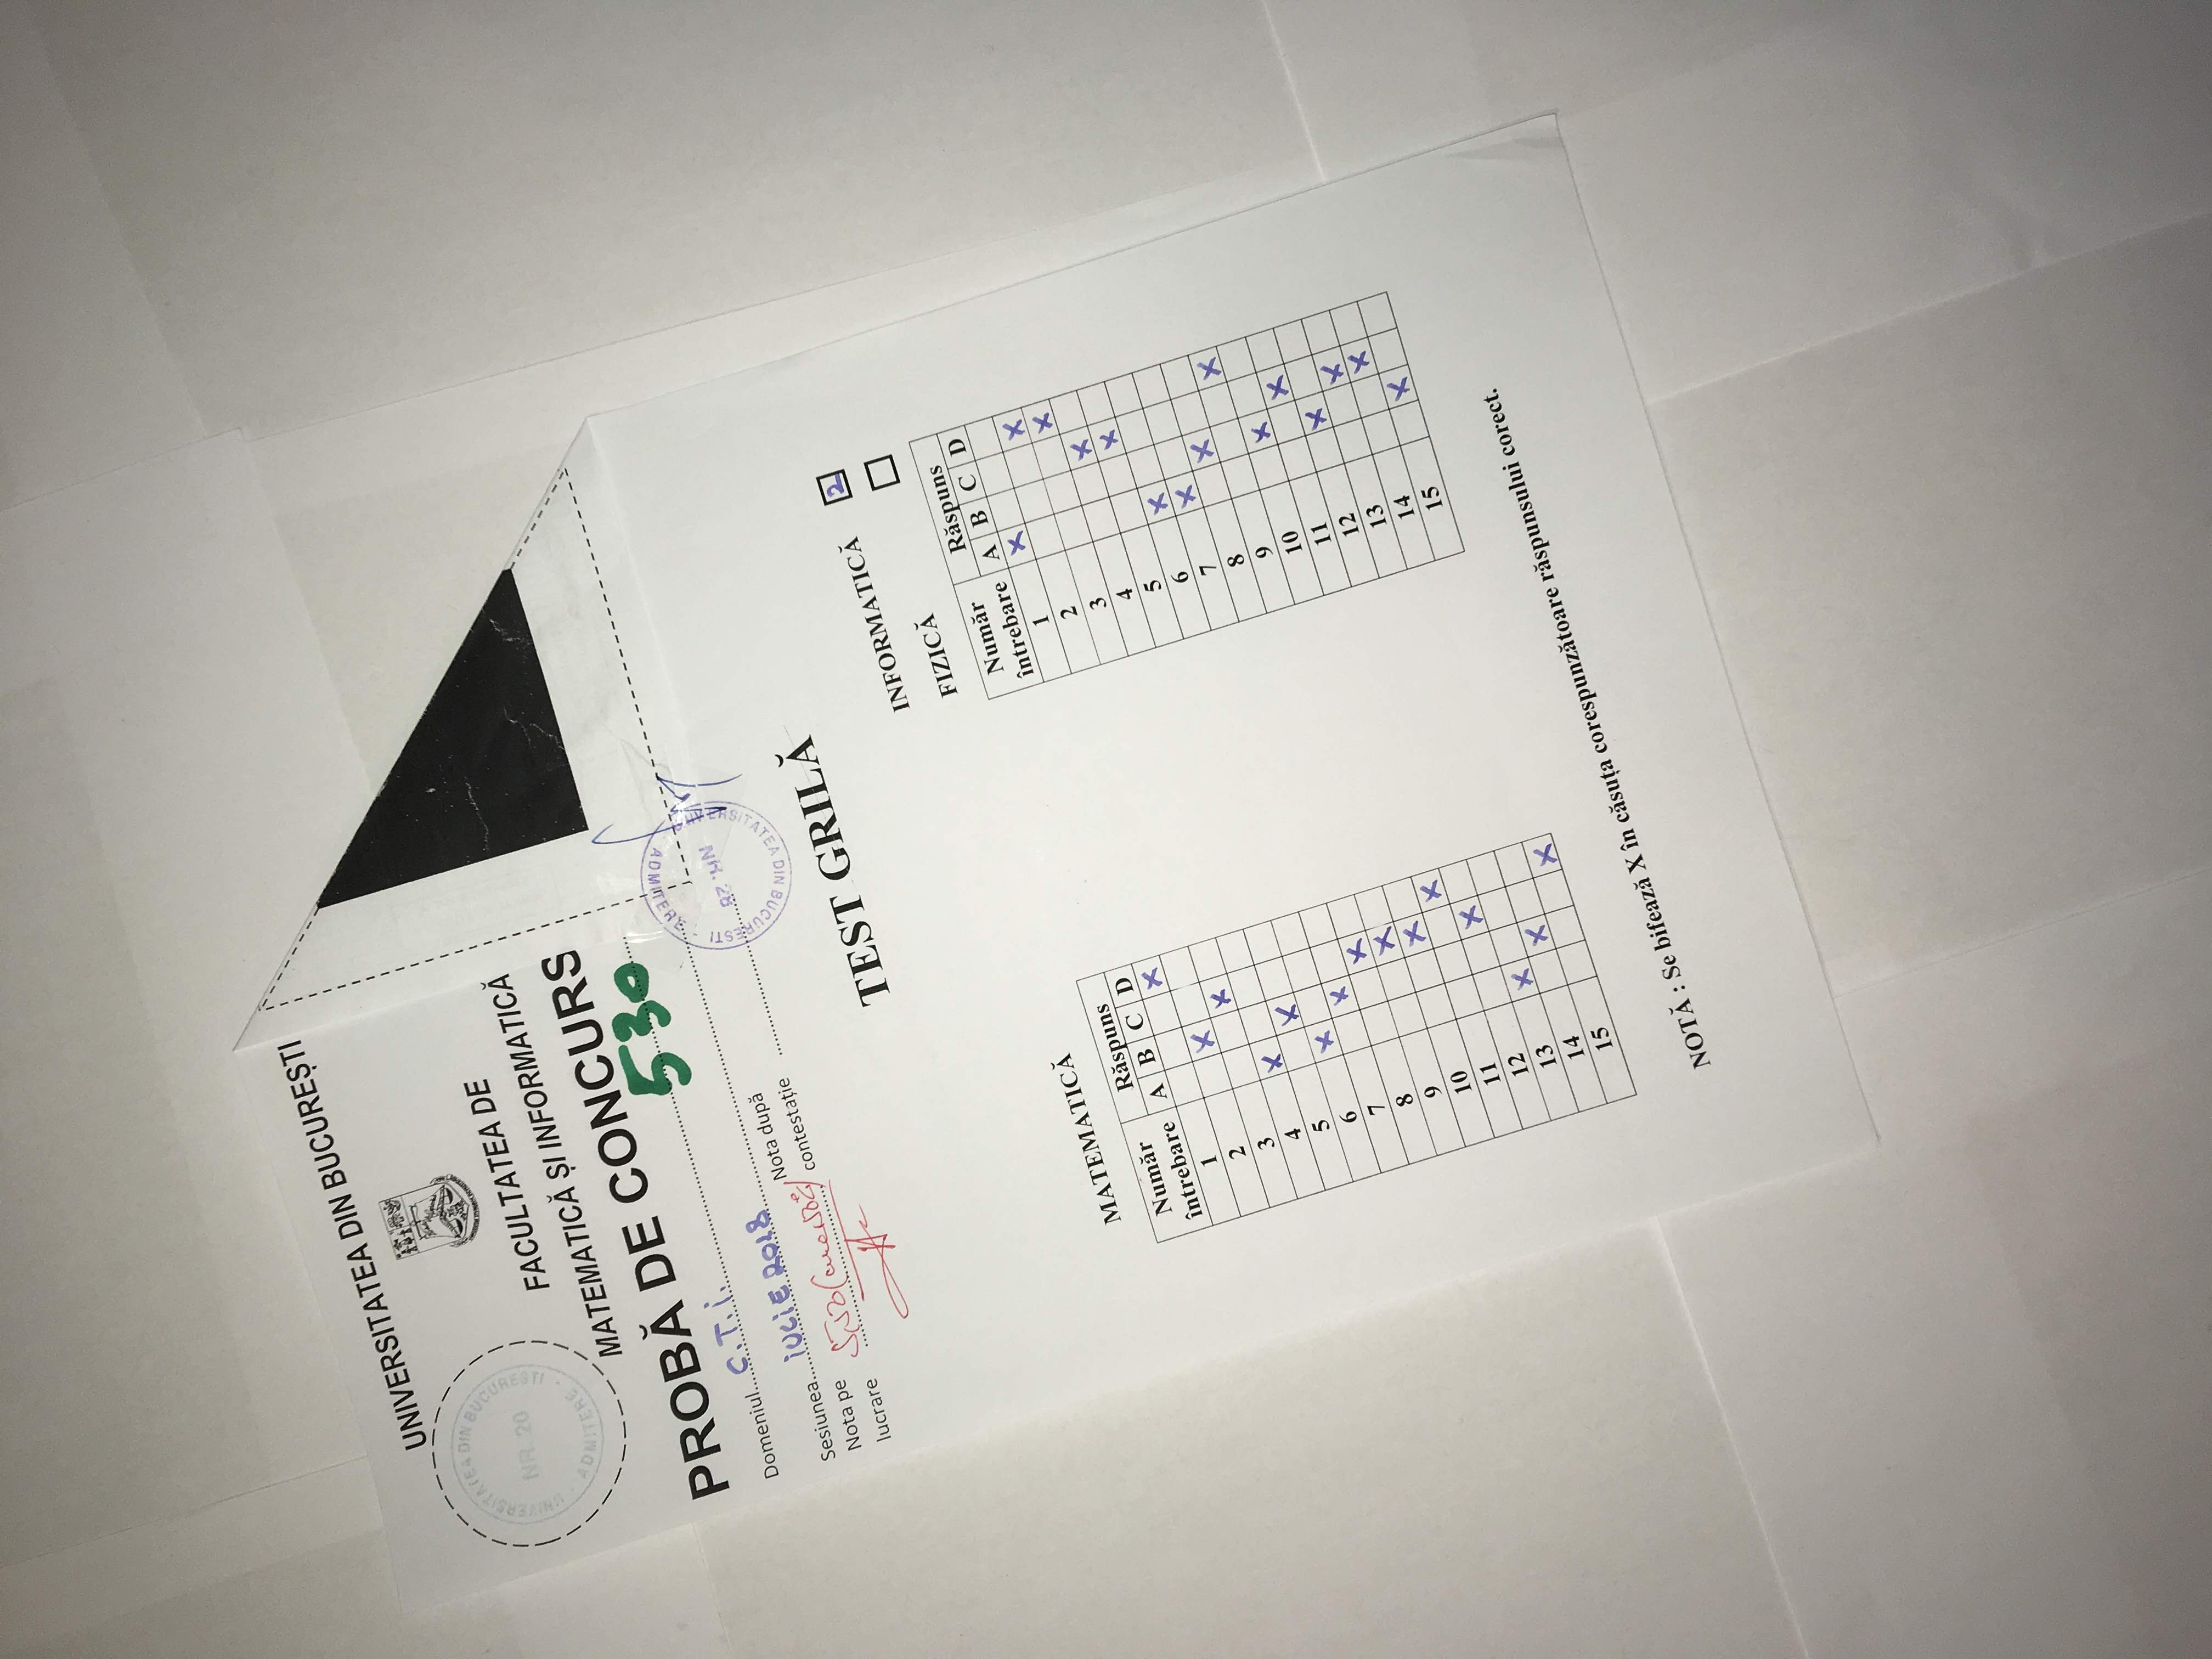 UNIVERSITATEA DIN BUCUREȘTI
UNIVERSITATEA DIN BUCUREȘTI
NR. 20
ADMITERE
FACULTATEA DE
MATEMATICĂ ȘI INFORMATICĂ
PROBĂ DE CONCURS
530
Domeniul C.T.i.
Sesiunea iULiE 2018
Nota pe lucrare 5,50
Nota după contestație
UNIVERSITATEA DIN BUCUREȘTI
NR. 28
ADMITERE
TEST GRILĂ
MATEMATICĂ
Număr întrebare Răspuns
A B C D
1 X
2 X
3 X
4 X
5 X
6 X
7 X
8 X
9 X
10 X
11 X
12 X
13 X
14 X
15 X
INFORMATICĂ 2
FIZICĂ
Număr întrebare Răspuns
A B C D
1 X
2 X
3 X
4 X
5 X
6 X
7 X
8 X
9 X
10 X
11 X
12 X
13 X
14 X
15 X
NOTĂ : Se bifează X în căsuța corespunzătoare răspunsului corect.